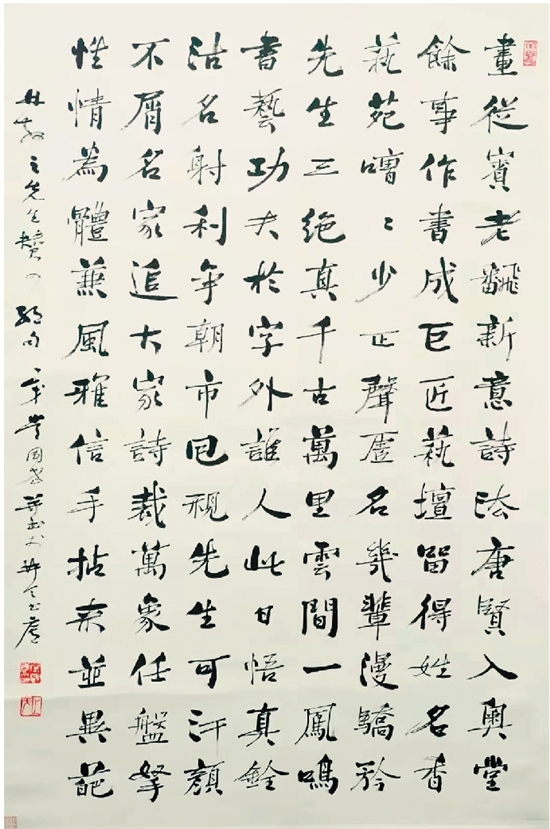 畫從賓老翻新意詩法唐賢入奧堂
餘事作書成巨匠萟壇留得姓名香
萟苑嘈〻少正聲虛名幾輩漫驕矜
先生三絶真千古萬里雲間一鳳鳴
書藝功夫於字外誰人此日悟真銓
沽名射利爭朝市回視先生可汗顏
不屑名家追大家詩裁萬象任盤拏
性情為體兼風雅信手拈来並異葩
林散之先生贊四絕句